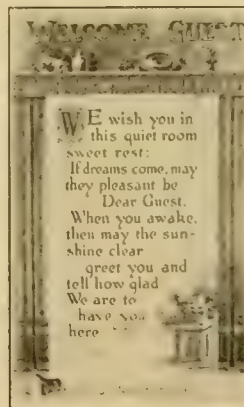 WELCOME GUEST
WE wish you in
this quiet room
sweet rest:
If dreams come, may
they pleasant be
Dear Guest.
When you awake,
then may the sun-
shine clear
greet you and
tell how glad
We are to
have you
here